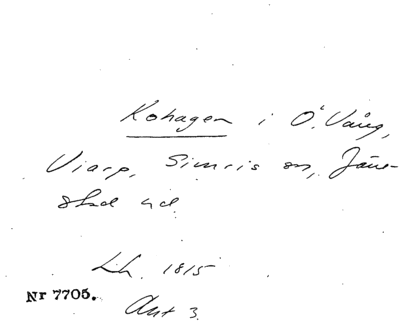 Kohagen i Ö. Vång,
Viarp, Simris sn, Järre-
stad hd
Lh. 1815
Nr 7705.
Akt 3.